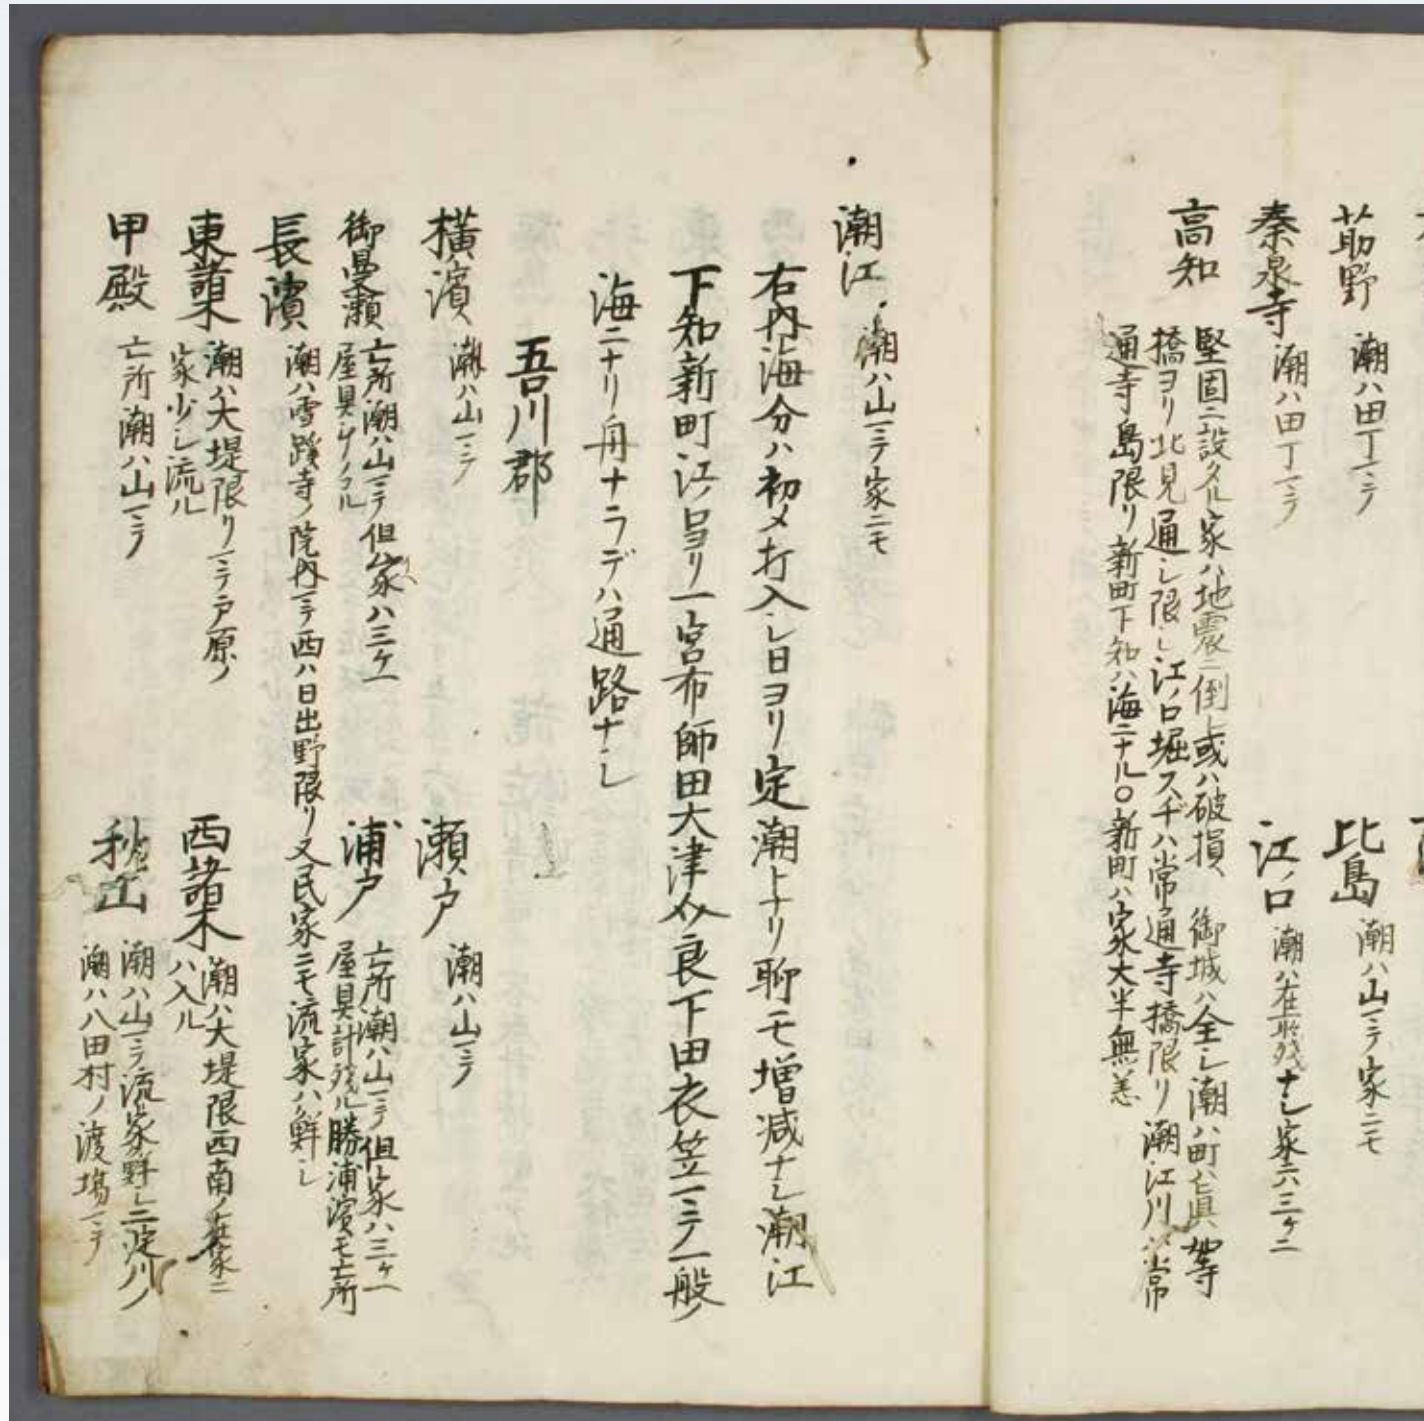 莇野 潮ハ田丁マテ
比島 潮ハ山マテ家ニモ
秦泉寺 潮ハ田丁マテ
江ノ口 潮ハ在所残ナシ家六三ケニ
高知 堅固ニ設タル家ハ地震ニ倒レ或ハ破損 御城ハ全シ潮ハ町ハ真如寺
橋ヨリ北見通シ限レ江ノ口堀スヂハ常通寺橋限リ潮江川ハ常
通寺島限リ新町下知ハ海ニナル〇新町ハ家大半無恙
潮江 潮ハ山マテ家ニモ
右内海分ハ初メ打入シ日ヨリ定潮トナリ聊モ増減ナシ潮江
下知新町江ノ口ヨリ一宮布師田大津介良下田衣笠マテ一般ノ
海ニナリ舟ナラデハ通路ナシ
吾川郡
横濱 潮ハ山マテ
瀬戸 潮ハ山マテ
御畳瀬 亡所潮ハ山マテ但家ハ三ケ一
屋具ケノコル
浦戸 亡所潮ハ山マテ但家ハ三ケ一
屋具計残ル勝浦濱モ亡所
長濱 潮ハ雪蹊寺ノ院内マテ西ハ日出野限リ又民家ニモ流家ハ鮮シ
東諸木 潮ハ大堤限リマテ戸原ノ
家少シ流ル
西諸木 潮ハ大堤限西南ノ在家ニ
ハ入ル
甲殿 亡所潮ハ山マテ
秋山 潮ハ山マテ流家鮮シ二淀川ノ
潮ハ八田村ノ渡場マテ